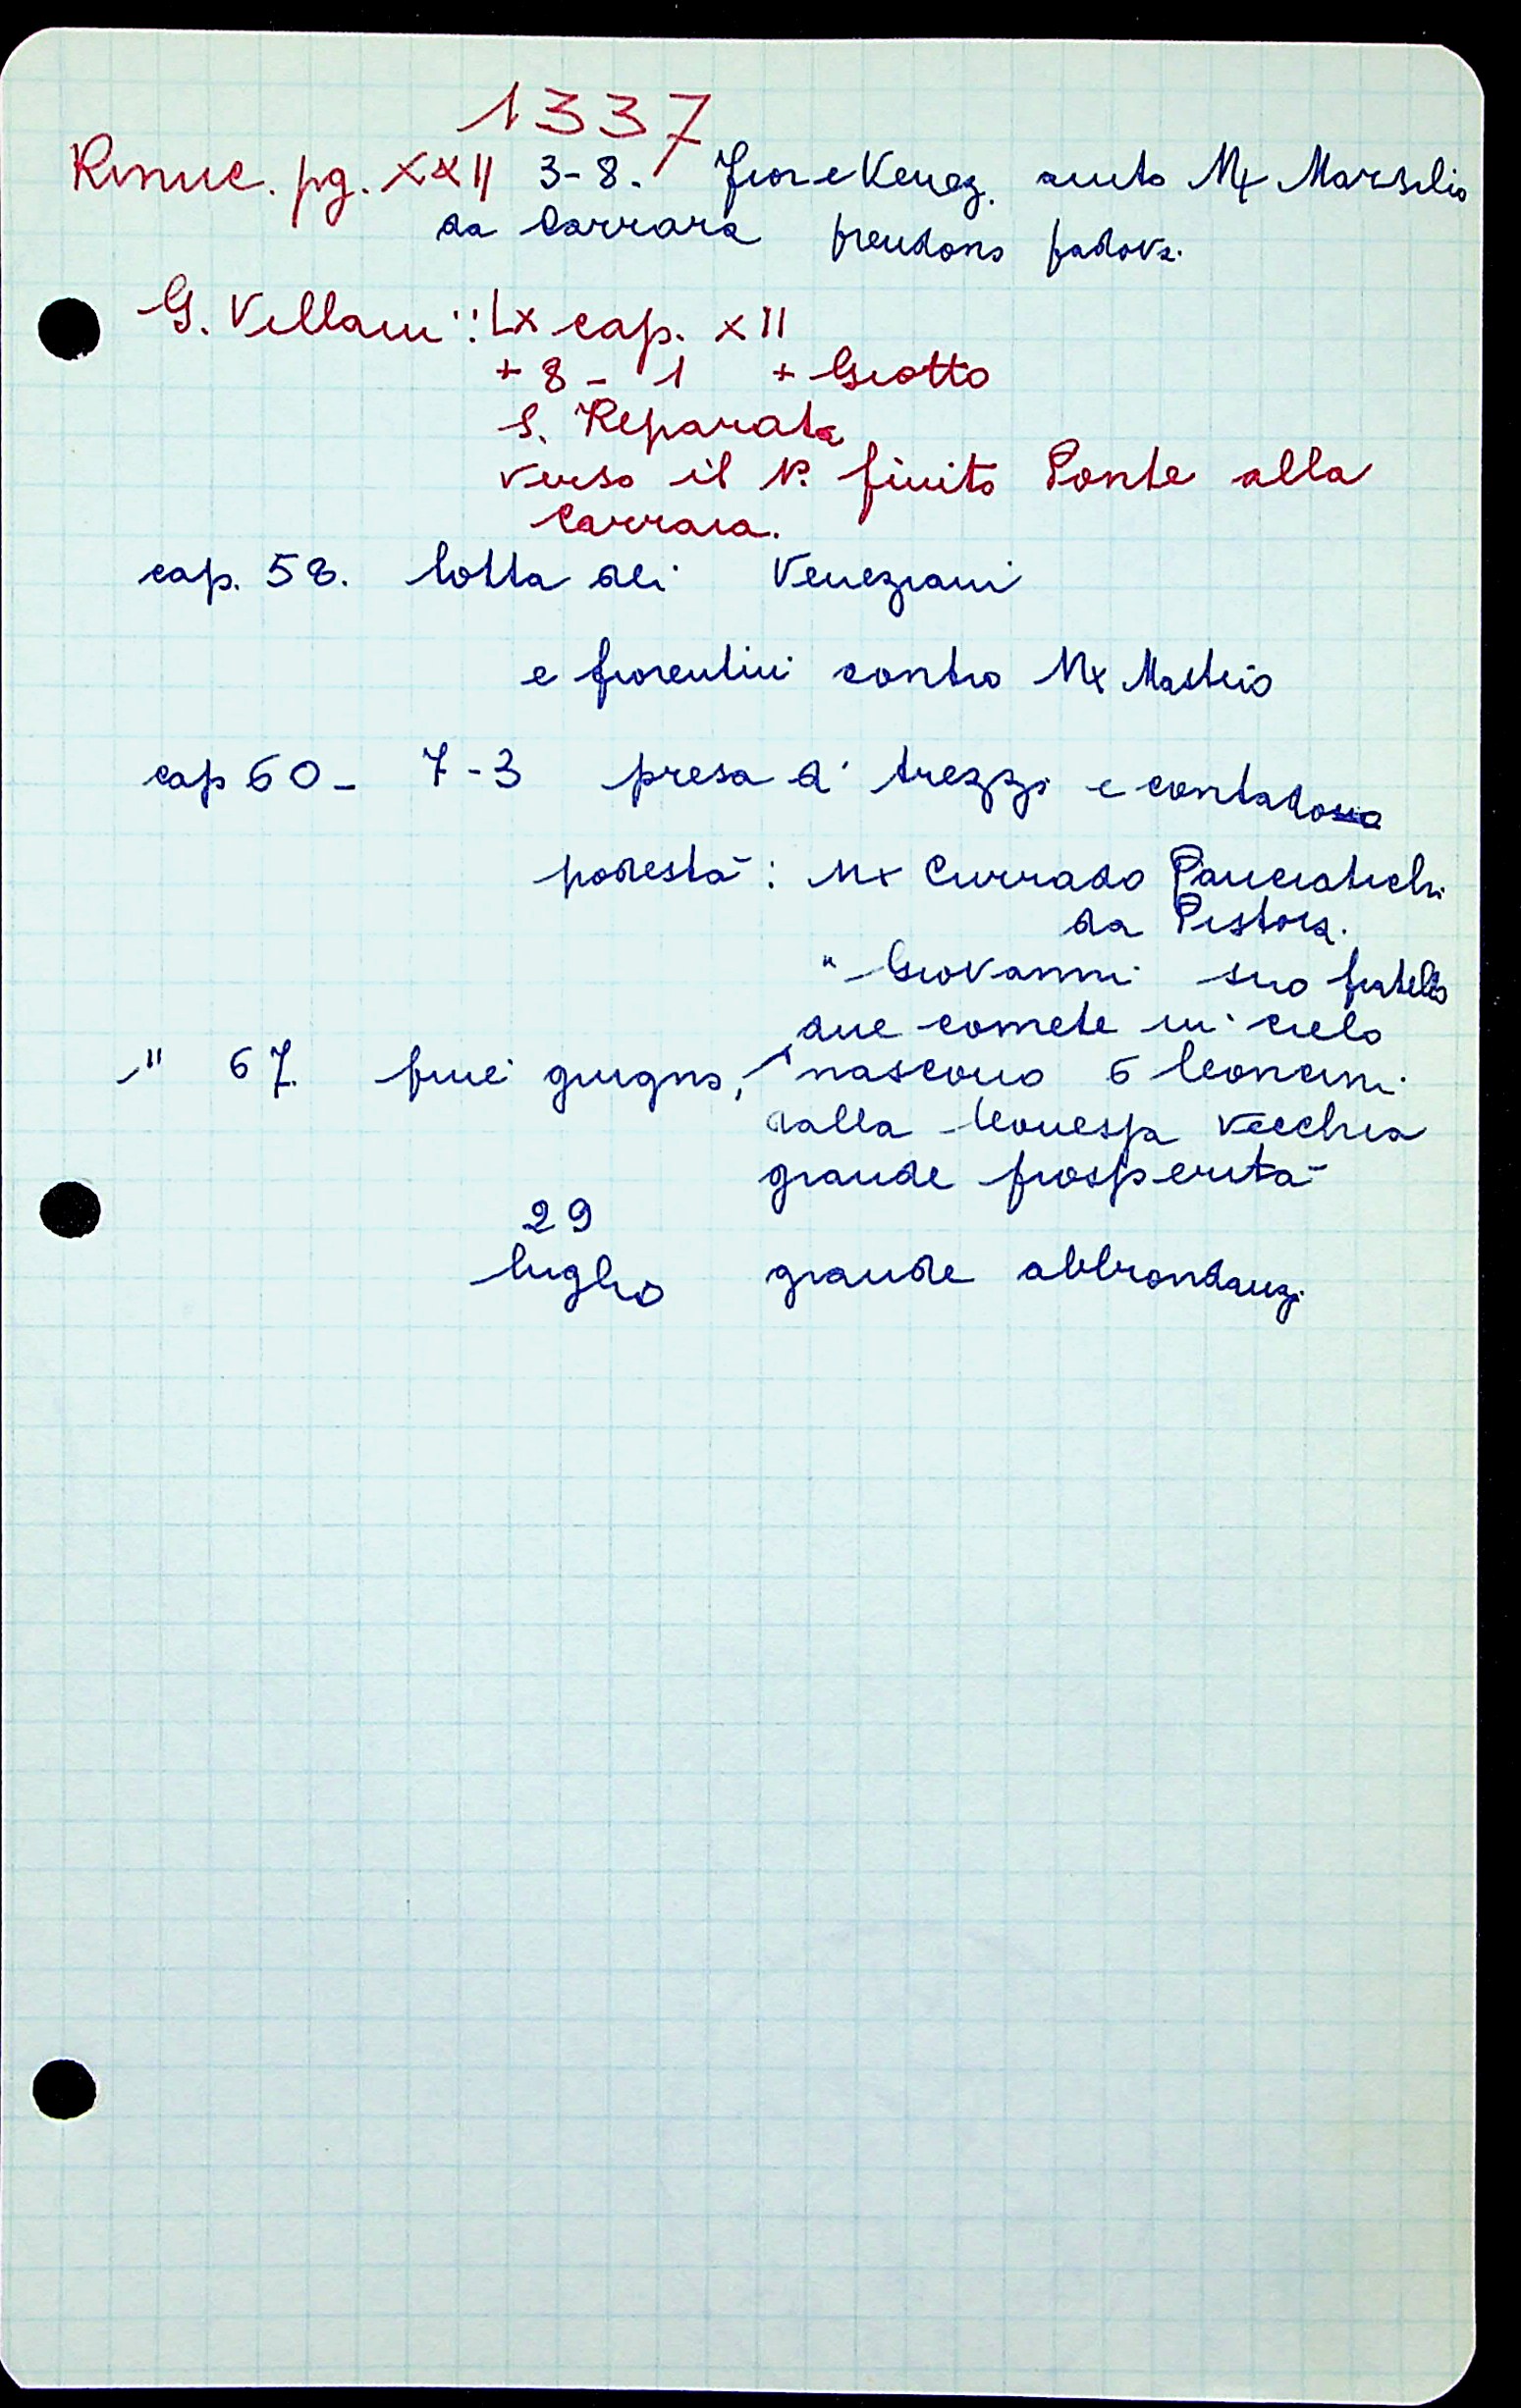 1337
Rinuc. pg. XXII 3-8. Fior e Venez. aiuto Mx Marsilio
da Carrara prendono padova.
G. Villani: Lx cap. XII
+ 8 - 1 + Giotto
S. Reparata
verso il P. finito Ponte alla
Carraia.
cap. 58. lotta dei Veneziani
e fiorentini contro Mx Mastino
cap 60 - 7-3 presa d'Arezzo e contado
podestà: Mx Currado Panciatichi
da Pistoia.
" Giovanni suo fratello
due comete in cielo
" 67. fine giugno, nascono 6 leoncini
dalla leonessa vecchia
grande prosperità
29
luglio grande abbondanz.